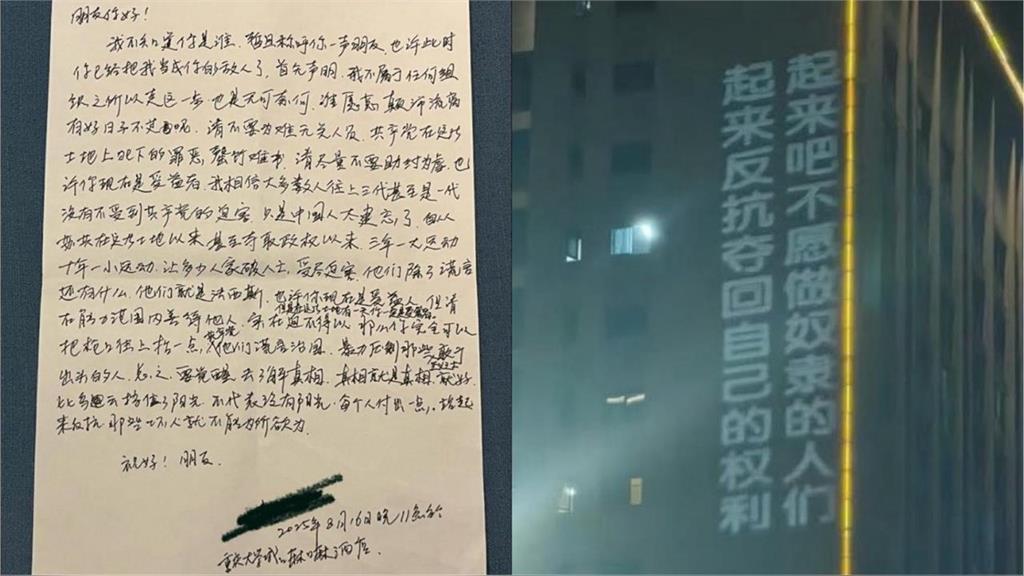 朋友你好！
我不知道你是谁、暂且称呼你一声朋友、也许此时
你已经把我当成你的敌人了，首先声明，我不属于任何组
织之所以走这一步 也是无可奈何，谁愿意颠沛流离
有好日子不过呢，请不要为难无关人员，共产党在这片
土地上犯下的罪恶，罄竹难书 请尽量不要助纣为虐，也
许你现在是受益者，我相信大多数人往上三代甚至是一代
没有不受到共产党的迫害 只是中国人太健忘了，自从
在这片土地以来 甚至夺取政权以来 三年一大运动
十年一小运动，让多少人家破人亡，受尽迫害，他们除了谎言
还有什么，他们就是法西斯，也许你现在是受益人，但请
在能力范围内善待他人，实在迫不得已 那么你完全可以
把枪口往上抬一点，他们谎言治国，暴力压制那些敢于
出头的人，总之 要觉醒 去了解真相，真相就是真相，就好
比乌云挡住了阳光、不代表没有阳光，每个人付出一点，站起
来反抗 那些坏人就不能为所欲为.
祝好！朋友.
2025年8月16日晚11点于
重庆大学城酒店.
起来吧不愿做奴隶的人们
起来反抗夺回自己的权利